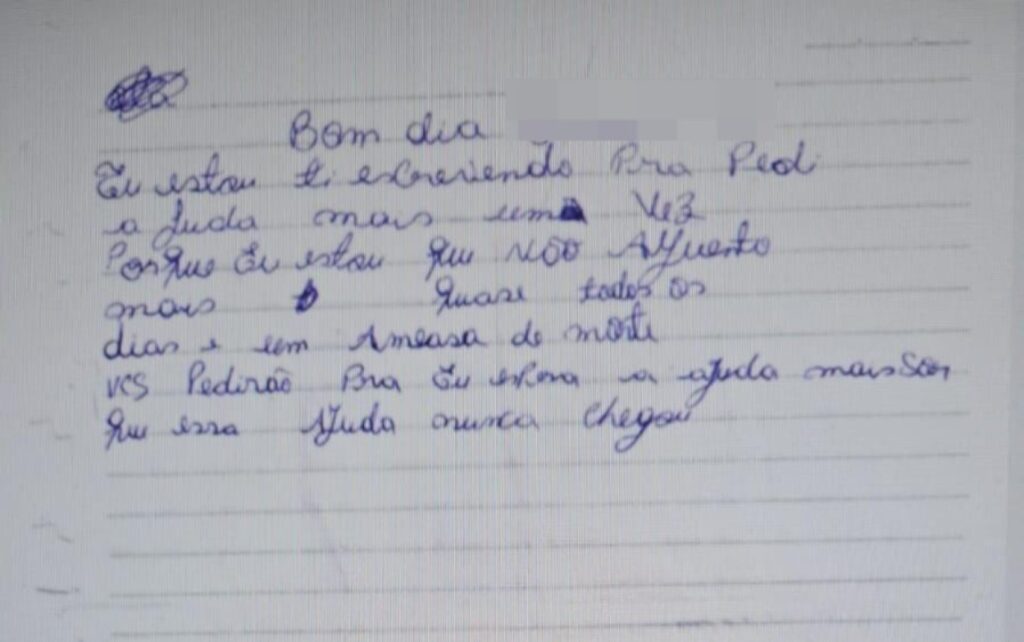 Bom dia
Eu estou ti escreviendo Pra Pedi
a Juda mais uma Vez
Porque Eu estou que não Aguento
mais quase todos os
dias e um Ameasa de morte
vcs Pedirão Pra Eu espera a ajuda mais Son
que essa Ajuda nunca chegou